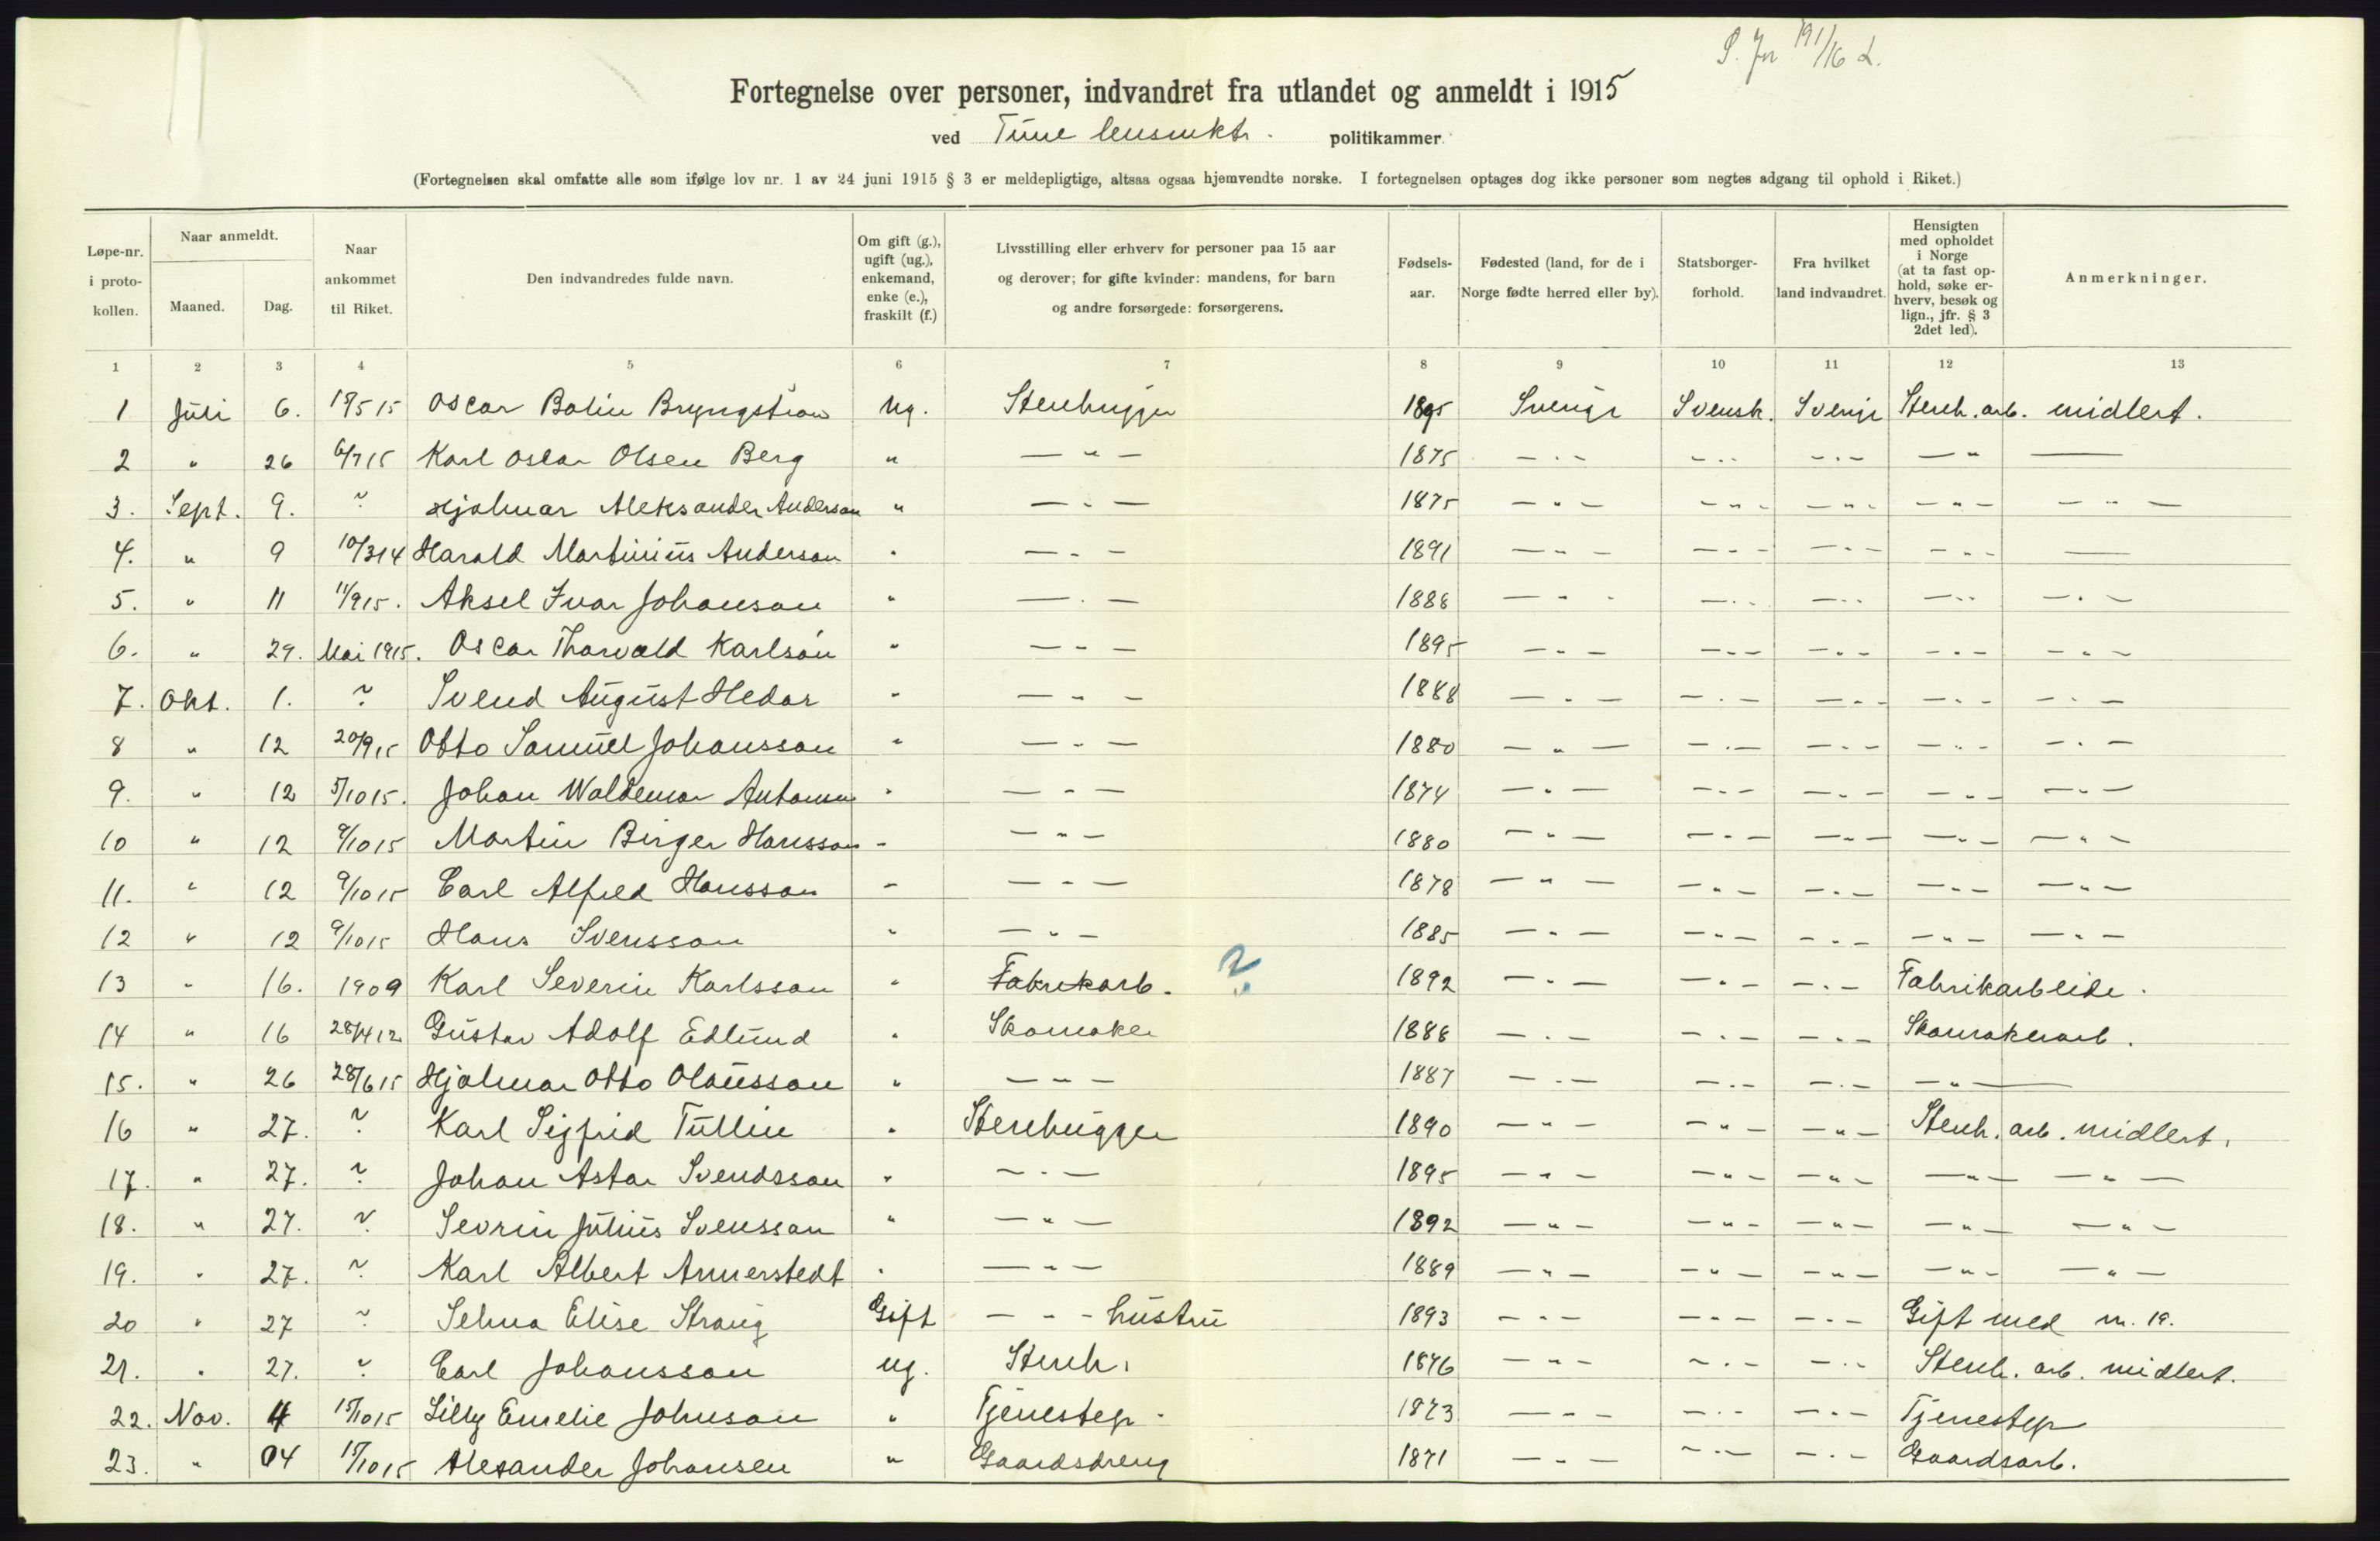 S. Jnr 191/16 L.
Fortegnelse over personer, indvandret fra utlandet og anmeldt i 1915
ved Tune lensmktr. politikammer.
(Fortegnelsen skal omfatte alle som ifølge lov nr. 1 av 24 juni 1915 § 3 er meldepligtige, altsaa ogsaa hjemvendte norske. I fortegnelsen optages dog ikke personer som negtes adgang til ophold i Riket.)
Løpe-nr. i proto-kollen.
Naar anmeldt.
Maaned.
Dag.
Naar ankommet til Riket.
Den indvandredes fulde navn.
Om gift (g.), ugift (ug.), enkemand, enke (e.), fraskilt (f.)
Livsstilling eller erhverv for personer paa 15 aar og derover; for gifte kvinder: mandens, for barn og andre forsørgede: forsørgerens.
Fødsels-aar.
Fødested (land, for de i Norge fødte herred eller by).
Statsborger-forhold.
Fra hvilket land indvandret.
Hensigten med opholdet i Norge (at ta fast op-hold, søke er-hverv, besøk og lign., jfr. § 3 2det led).
Anmerkninger.
1 2 3 4 5 6 7 8 9 10 11 12 13
1 Juli 6. 17/5 15 Oscar Bolin Bryngstrøm ug. Stenhugger 1895 Sverige Svensk. Sverige Stenh. arb. midlert.
2 " 26 6/7 15 Karl Oscar Olsen Berg " — " — 1875 — " — — " — — " — — " —
3. Sept. 9. ? Hjalmar Aleksander Anderson " — " — 1875 — " — — " — — " — — " — — " —
4. " 9 10/3 14 Harald Martinius Anderson " — " — 1891 — " — — " — — " — — " — —
5. " 11 11/9 15. Aksel Ivar Johanson " — " — 1888 — " — — " — — " — — " — — " —
6. " 29. Mai 1915. Oscar Thorvald Karlson " — " — 1895 — " — — " — — " — — " — — " —
7. Okt. 1. ? Svend August Hedar " — " — 1888 — " — — " — — " — — " — — " —
8 " 12 20/9 15 Otto Samuel Johansson " — " — 1880 — " — — " — — " — — " — — " —
9. " 12 5/10 15. Johan Waldemar " — " — 1874 — " — — " — — " — — " — — " —
10 " 12 9/10 15 Martin Birger Hansson " — " — 1880 — " — — " — — " — — " — — " —
11. " 12 9/10 15 Carl Alfred Hansson " — " — 1878 — " — — " — — " — — " — — " —
12 " 12 9/10 15 Hans Svensson " — " — 1885 — " — — " — — " — — " — — " —
13 " 16. 1909 Karl Severin Karlsson " Fabrikarb. ? 1892 — " — — " — — " — Fabrikarbeide.
14 " 16 28/4 12 Gustav Adolf Edlund " Skomaker 1888 — " — — " — — " — Skomakerarb.
15. " 26 28/6 15 Hjalmar Otto Olausson " — " — 1887 — " — — " — — " — — " —
16 " 27. ? Karl Sigfrid Tullin " Stenhugger 1890 — " — — " — — " — Stenh. arb. midlert.
17. " 27. ? Johan Astar Svendsson " — " — 1895 — " — — " — — " — — " — — " —
18. " 27. ? Sevrin Julius Svensson " — " — 1892 — " — — " — — " — — " — — " —
19. " 27. ? Karl Albert Annerstedt " — " — 1889 — " — — " — — " — — " — — " —
20 " 27 ? Selma Elise Strang Gift — " — hustru 1893 — " — — " — — " — Gift med n. 19.
21. " 27. ? Carl Johansson ug. Stenh. 1876 — " — — " — — " — Stenh. arb. midlert.
22. Nov. 4 15/10 15 Lilly Emelie Johnson " Tjenestep. 1873 — " — — " — — " — Tjenestep
23. " 04 15/10 15 Alexander Johansen " Gaardsdreng 1871 — " — — " — — " — Gaardsarb.